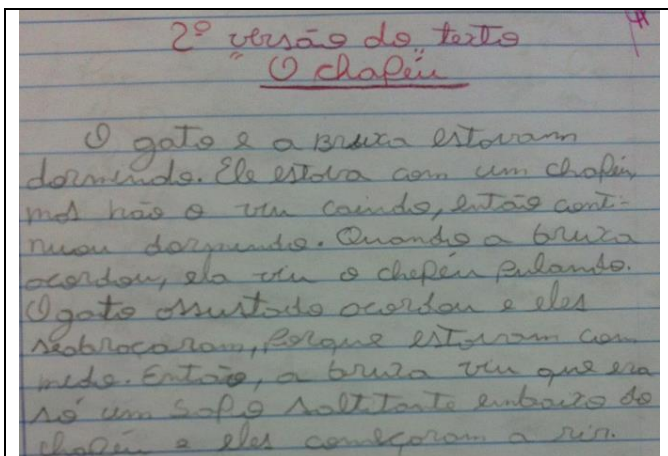 2º versão do texto
"O chapéu"
O gato e a Bruxa estavam
dormindo. Ele estava com um chapéu,
mas não o viu caindo, então conti-
nuou dormindo. Quando a bruxa
acordou, ela viu o chepéu pulando.
O gato assustado acordou e eles
seabraçaram, porque estavam com
medo. Então, a bruxa viu que era
só um sapo saltitante embaixo do
chapéu e eles começaram a rir.